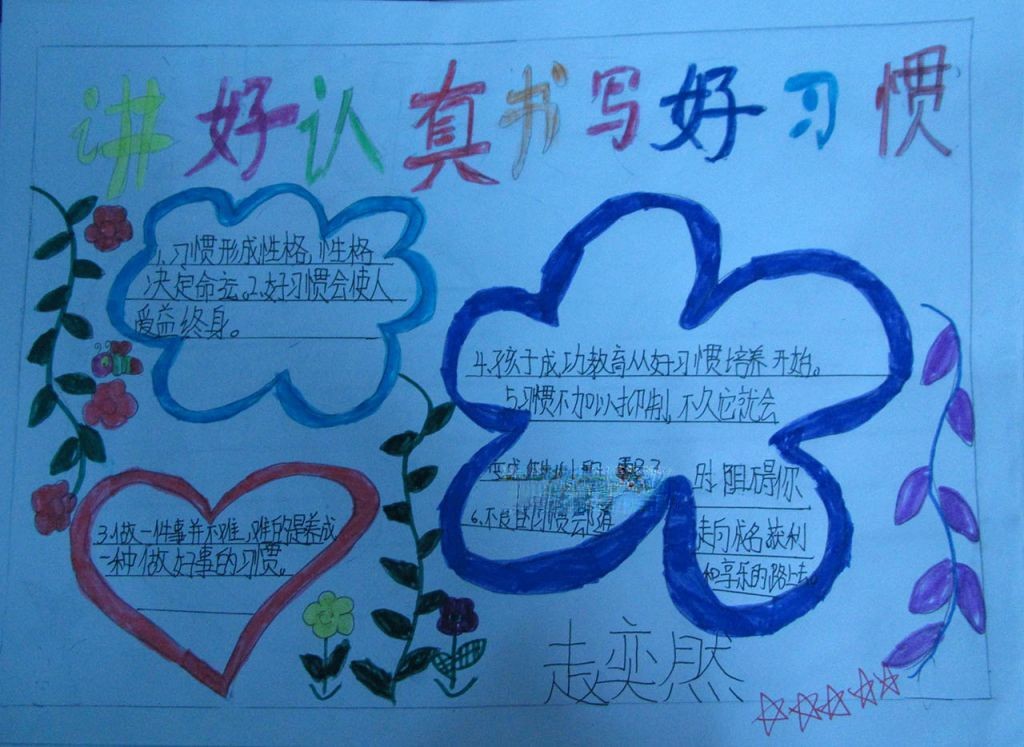 讲好认真书写好习惯
1.习惯形成性格,性格
决定命运。2.好习惯会使人
受益终身。
3.做一件事并不难,难的是养成
一种做好事的习惯。
4.孩子成功教育从好习惯培养开始。
5.习惯不加以抑制,不久它就会
变成
6.不良的习惯会随
时阻碍你
走向成名获利
和享乐的路上去。
赵奕然